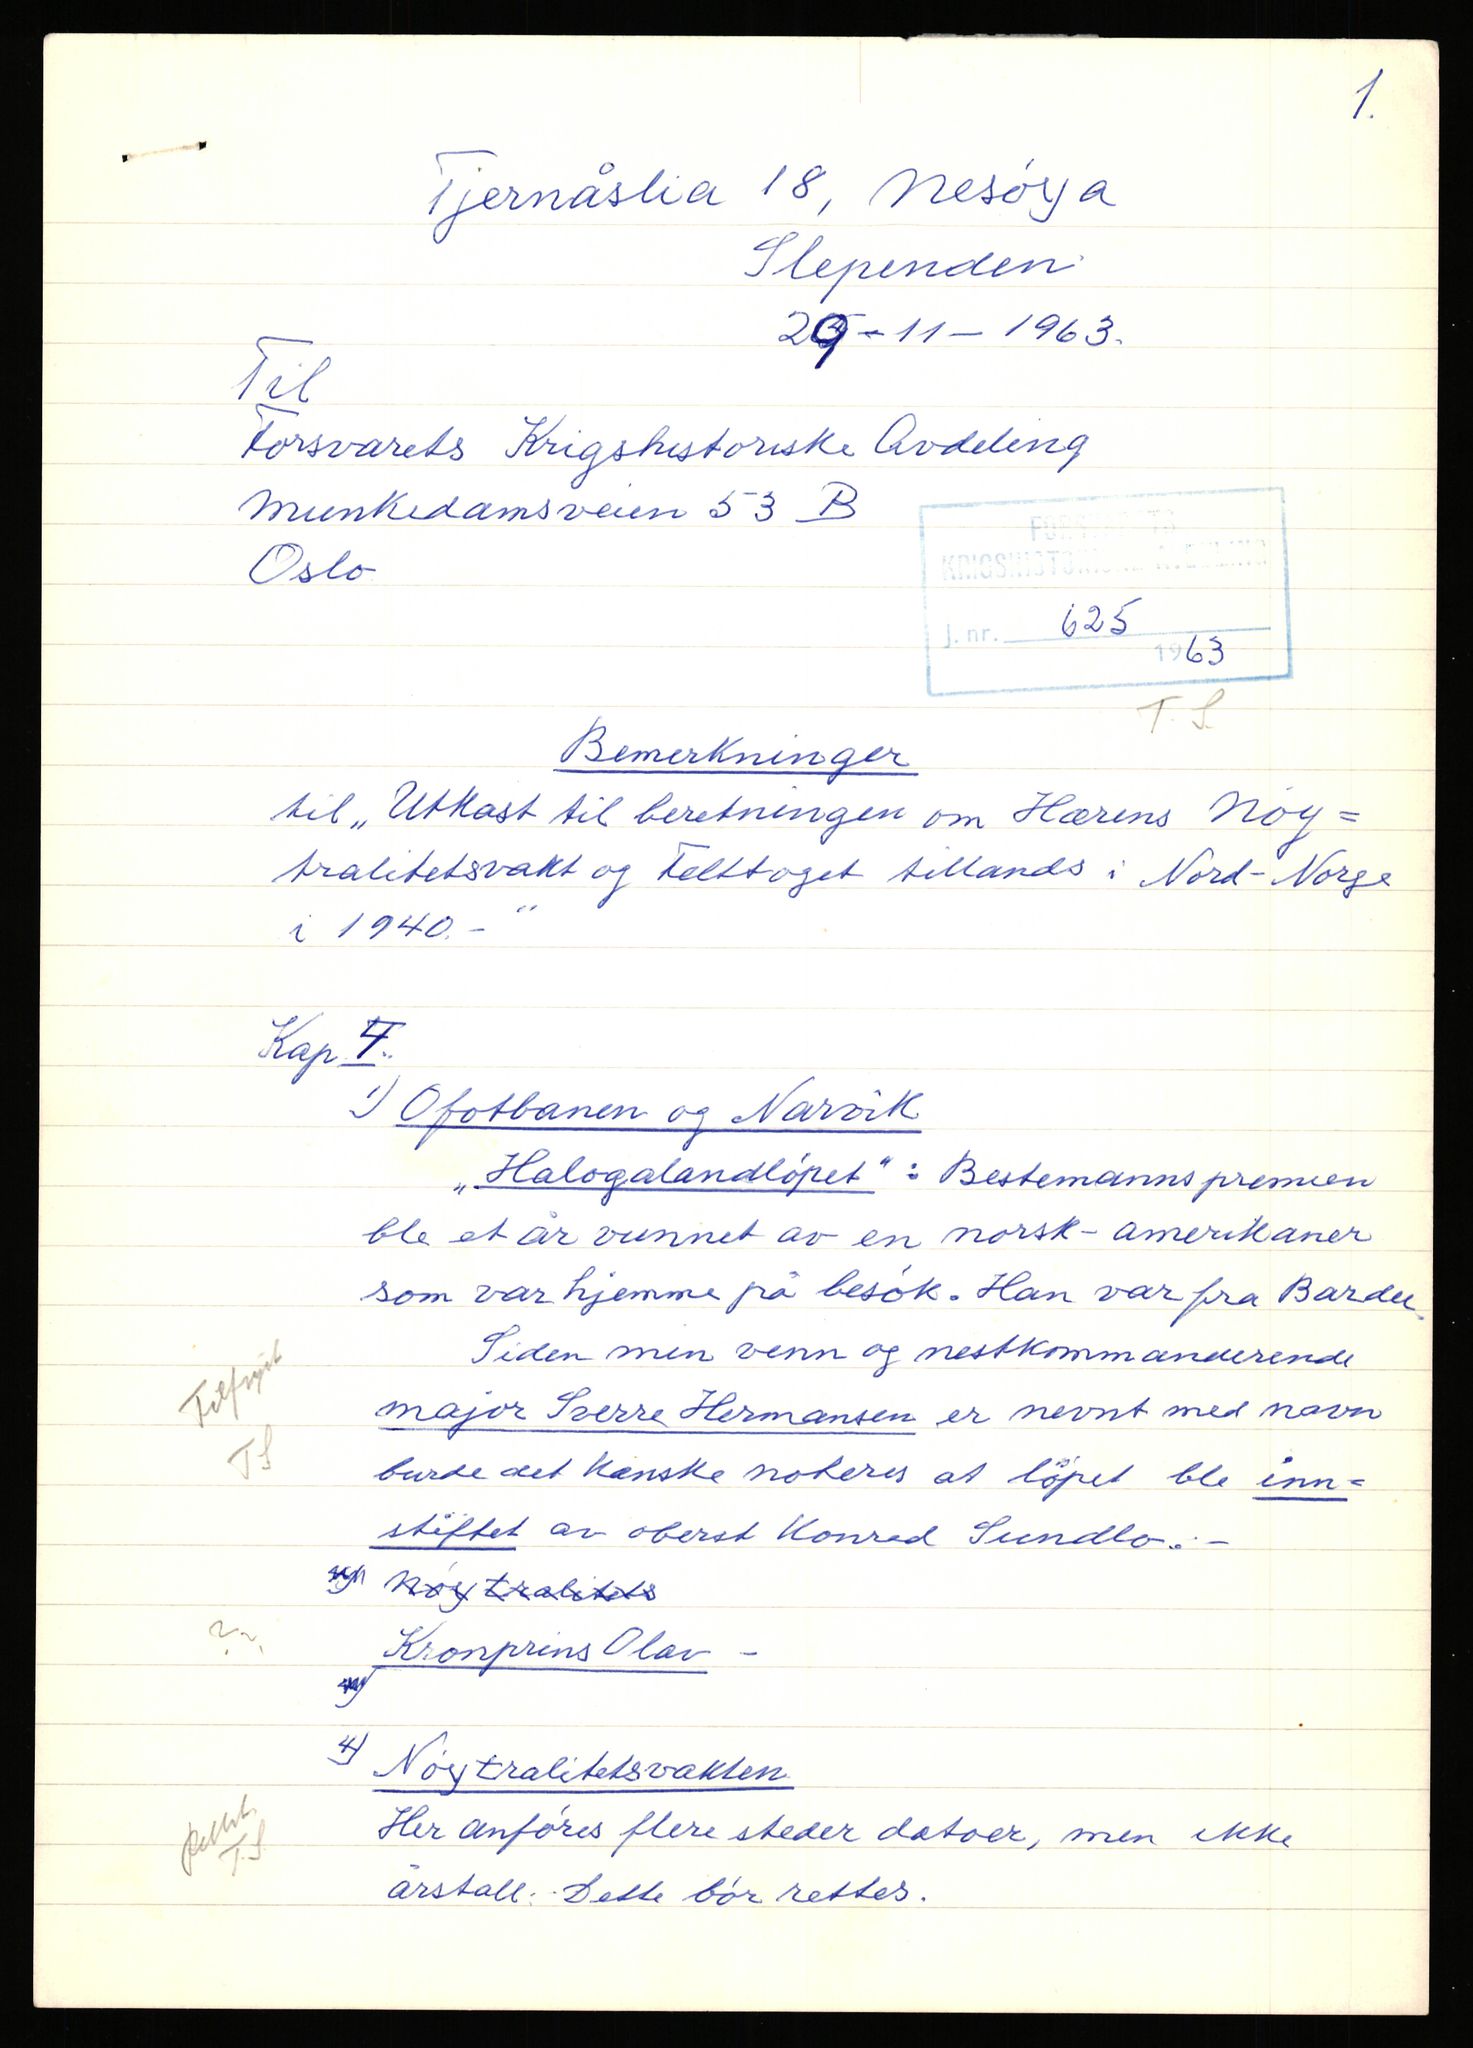 1.
Tjernåslia 18, Nesöya
Slependen
29-11-1963.
Til
Forsvarets Krigshistoriske Avdeling
Munkedamsveien 53 B
Oslo
FORSVARETS
KRIGSHISTORISKE AVDELING
J. nr. 625
1963
T. S.
Bemerkninger
til „Utkast til beretningen om Hærens Nöy=
tralitetsvakt og Felttoget tillands i Nord-Norge
i 1940.-"
Kap 4.
1) Ofotbanen og Narvik
„Halogalandlöpet": Bestemannspremien
ble et år vunnet av en norsk-amerikaner
som var hjemme på besök. Han var fra Bardu.
Siden min venn og nestkommanderende
Tilföyet
major Sverre Hermansen er nevnt med navn
TS
burde det kanske noteres at löpet ble inn=
stiftet av oberst Konrad Sundlo.-
Nöytralitets
??
Kronprins Olav -
4) Nöytralitetsvakten
Rettet
T.S.
Her anföres flere steder datoer, men ikke
årstall. Dette bör rettes.